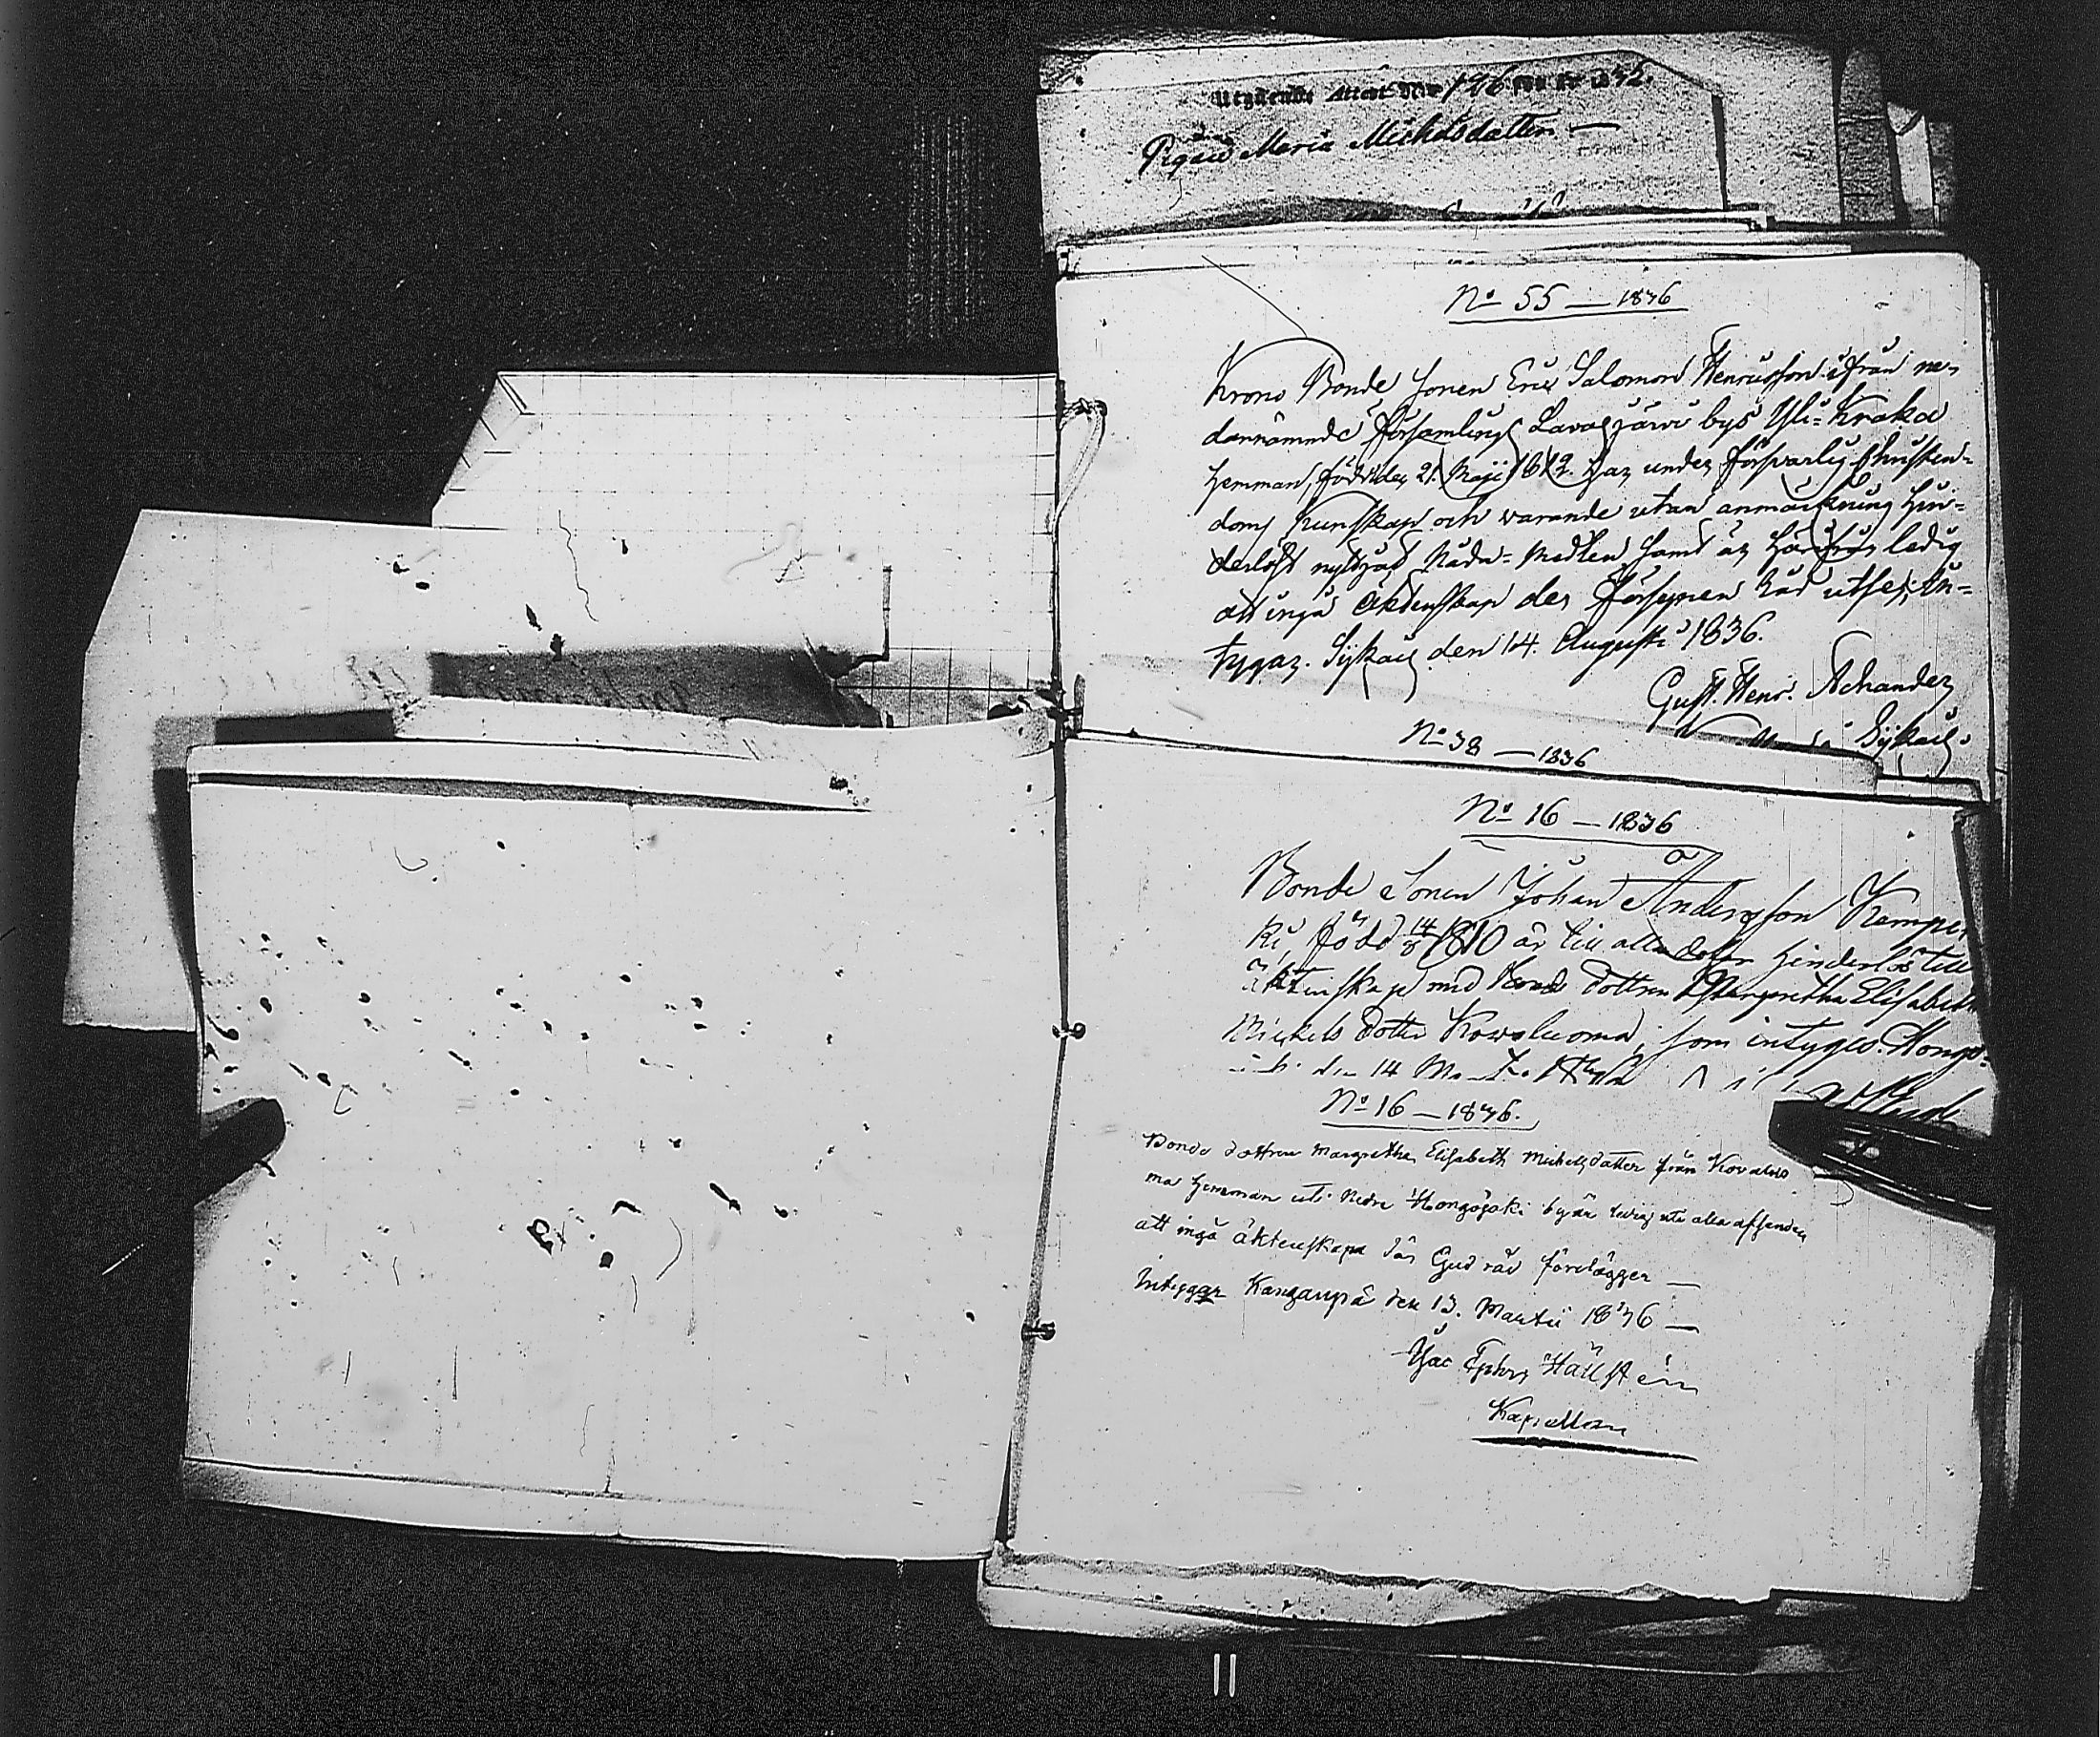 Utgående Attest No 196
Pigan Maria Michelsdotter —
No 55 — 1836
Krono Bonde Sonen Eric Salomon Henricsson ifrån ne-
dannämnde Församlings Lavasjärvi bys Yli-Kraka
Hemman, född den 21. Maji 1812. har under försvarlig Christen-
doms Kunskap och varande utan anmärkning hin-
derlöst nyttjat Nåda-Medlen samt är härifrån ledig
att ingå Äktenskap der Försynen Råd utser; In-
tygar. Sykais den 14. Augusti 1836.
Gust. Henr. Achander
Sykais.
No 38 — 1836
No 16 — 1836
Bonde Sonen Johan Andersson Kempi
ki, född 14/8 1810 är till alla delar hinderlös till
äktenskap med Bonde Dottren Margaretha Elisabeth
Mickels Dotter Kowaluoma, som intygas. Hongo-
den 14
No 16 — 1836.
Bonde dottren Margretha Elisabeth Michelsdotter från Kovaluo
ma Hemman uti Nedre Hongojoki by är ledig uti alla afseenden
att ingå äktenskap där Gud råd förelägger —
Intygar Kanganpä den 13. Martii 1836 —
Jac Hällsten
Kapellan
11